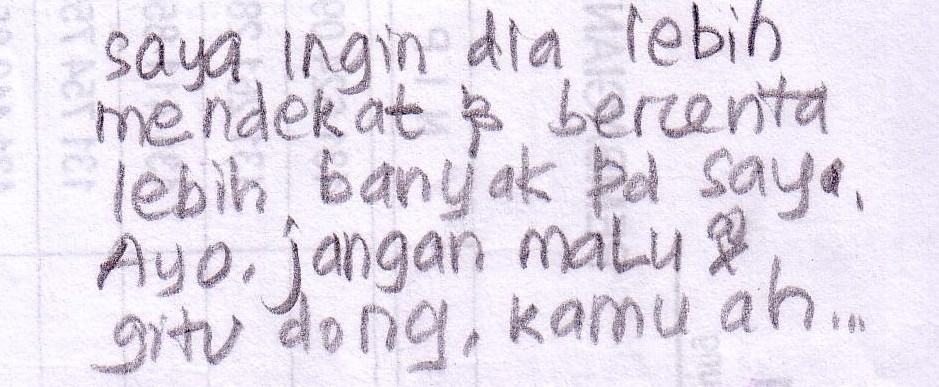 saya ingin dia lebih
mendekat & bercerita
lebih banyak pd saya.
Ayo. jangan malu2
gitu dong, kamu ah...